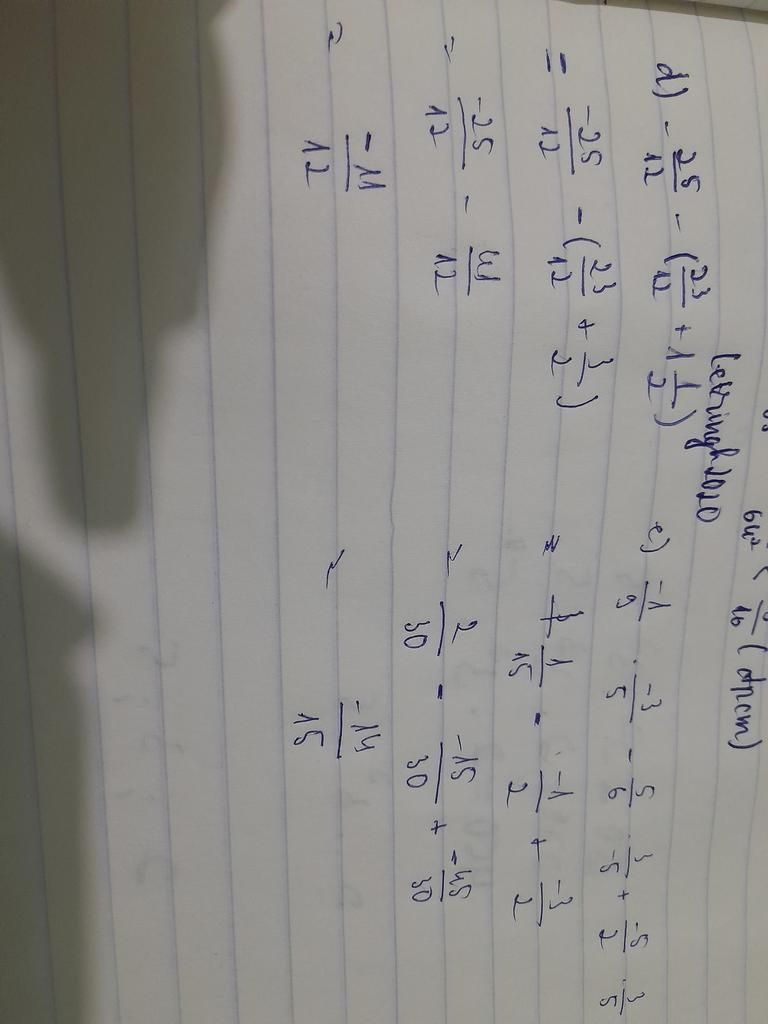 64² < 1/16 (đpcm)
letringh2020
d) - 25/12 - (23/12 + 1 1/2)
= -25/12 - (23/12 + 3/2)
= -25/12 - 41/12
= -11/12
e) -1/9 . -3/5 - 5/6 . 3/-5 + -5/2 . 3/5
= 1/15 - -1/2 + -3/2
= 2/30 - -15/30 + -45/30
= -14/15